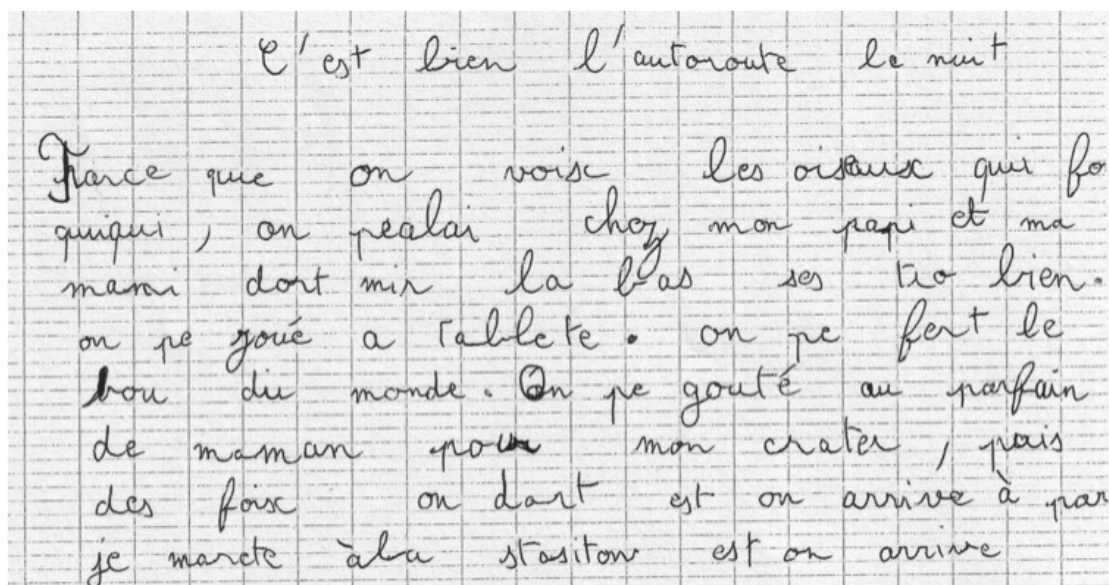 C'est bien l'autoroute le nuit
Parce que on voix les oiseaux qui fo
quiqui, on pealai chez mon papi et ma
mami dort mir la bas ses tro bien.
on pe joué a tablete. on pe fert le
tou du monde. On pe gouté au parfain
de maman pour mon crater, puis
des foix on dort est on arrive à par
je marcte àla stasiton est on arrive